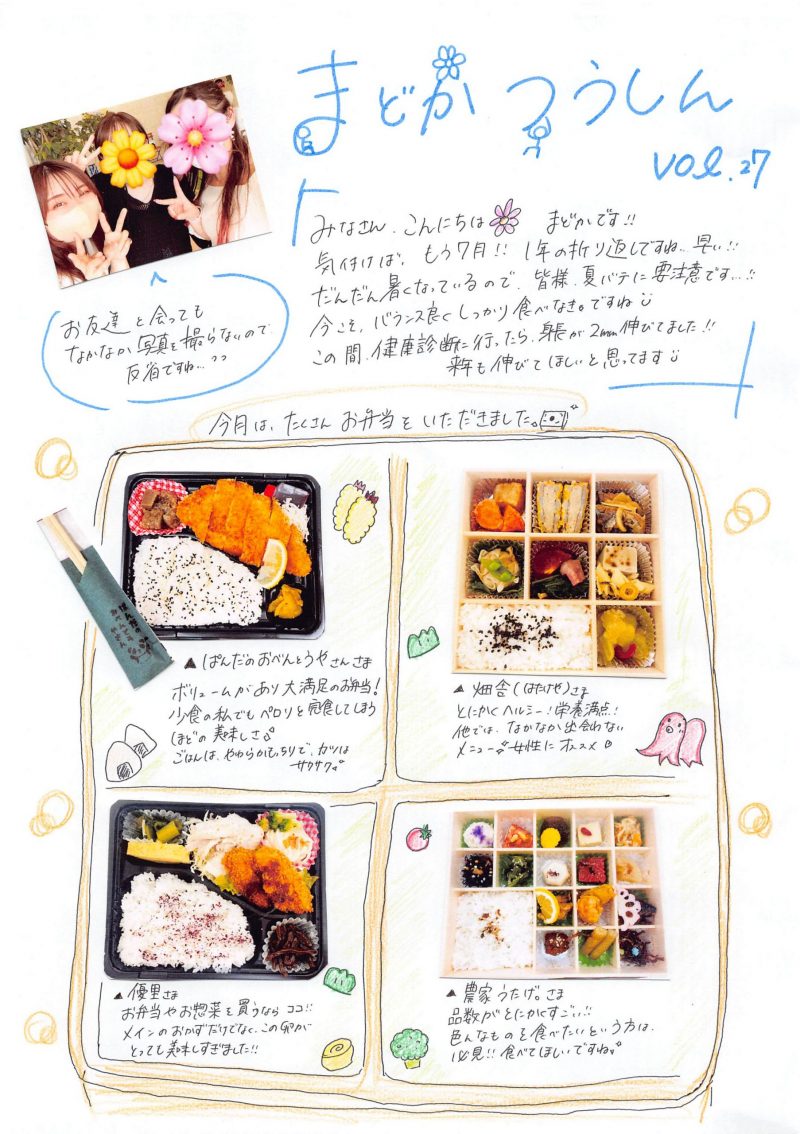 まどか つうしん
vol.27
みなさん、こんにちは まどかです!!
気付けば、もう7月!! 1年の折り返しですね… 早い!!
だんだん暑くなっているので、皆様、夏バテに要注意です…!!
今こそ、バランス良くしっかり食べなきゃですね
この間、健康診断に行ったら、身長が2mm伸びてました!!
来年も伸びてほしいと思ってます
お友達と会っても
なかなか写真を撮らないので
反省ですね…
今月は、たくさんお弁当をいただきました。
▲ ぱんだのおべんとうやさんさま
ボリュームがあり大満足のお弁当!
少食の私でもペロリと完食してしまう
ほどの美味しさ♪
ごはんは、やわらかもっちりで、カツは
サクサク♪
▲ 畑舎(はたけや)さま
とにかくヘルシー!栄養満点!
他では、なかなか出会わない
メニュー♪女性にオススメ
▲ 優里さま
お弁当やお惣菜を買うならココ!!
メインのおかずだけでなく、この卵が
とっても美味しすぎました!!
▲ 農家 うたげ。さま
品数がとにかくすごい!!
色んなものを食べたいという方は、
必見!! 食べてほしいですね♪